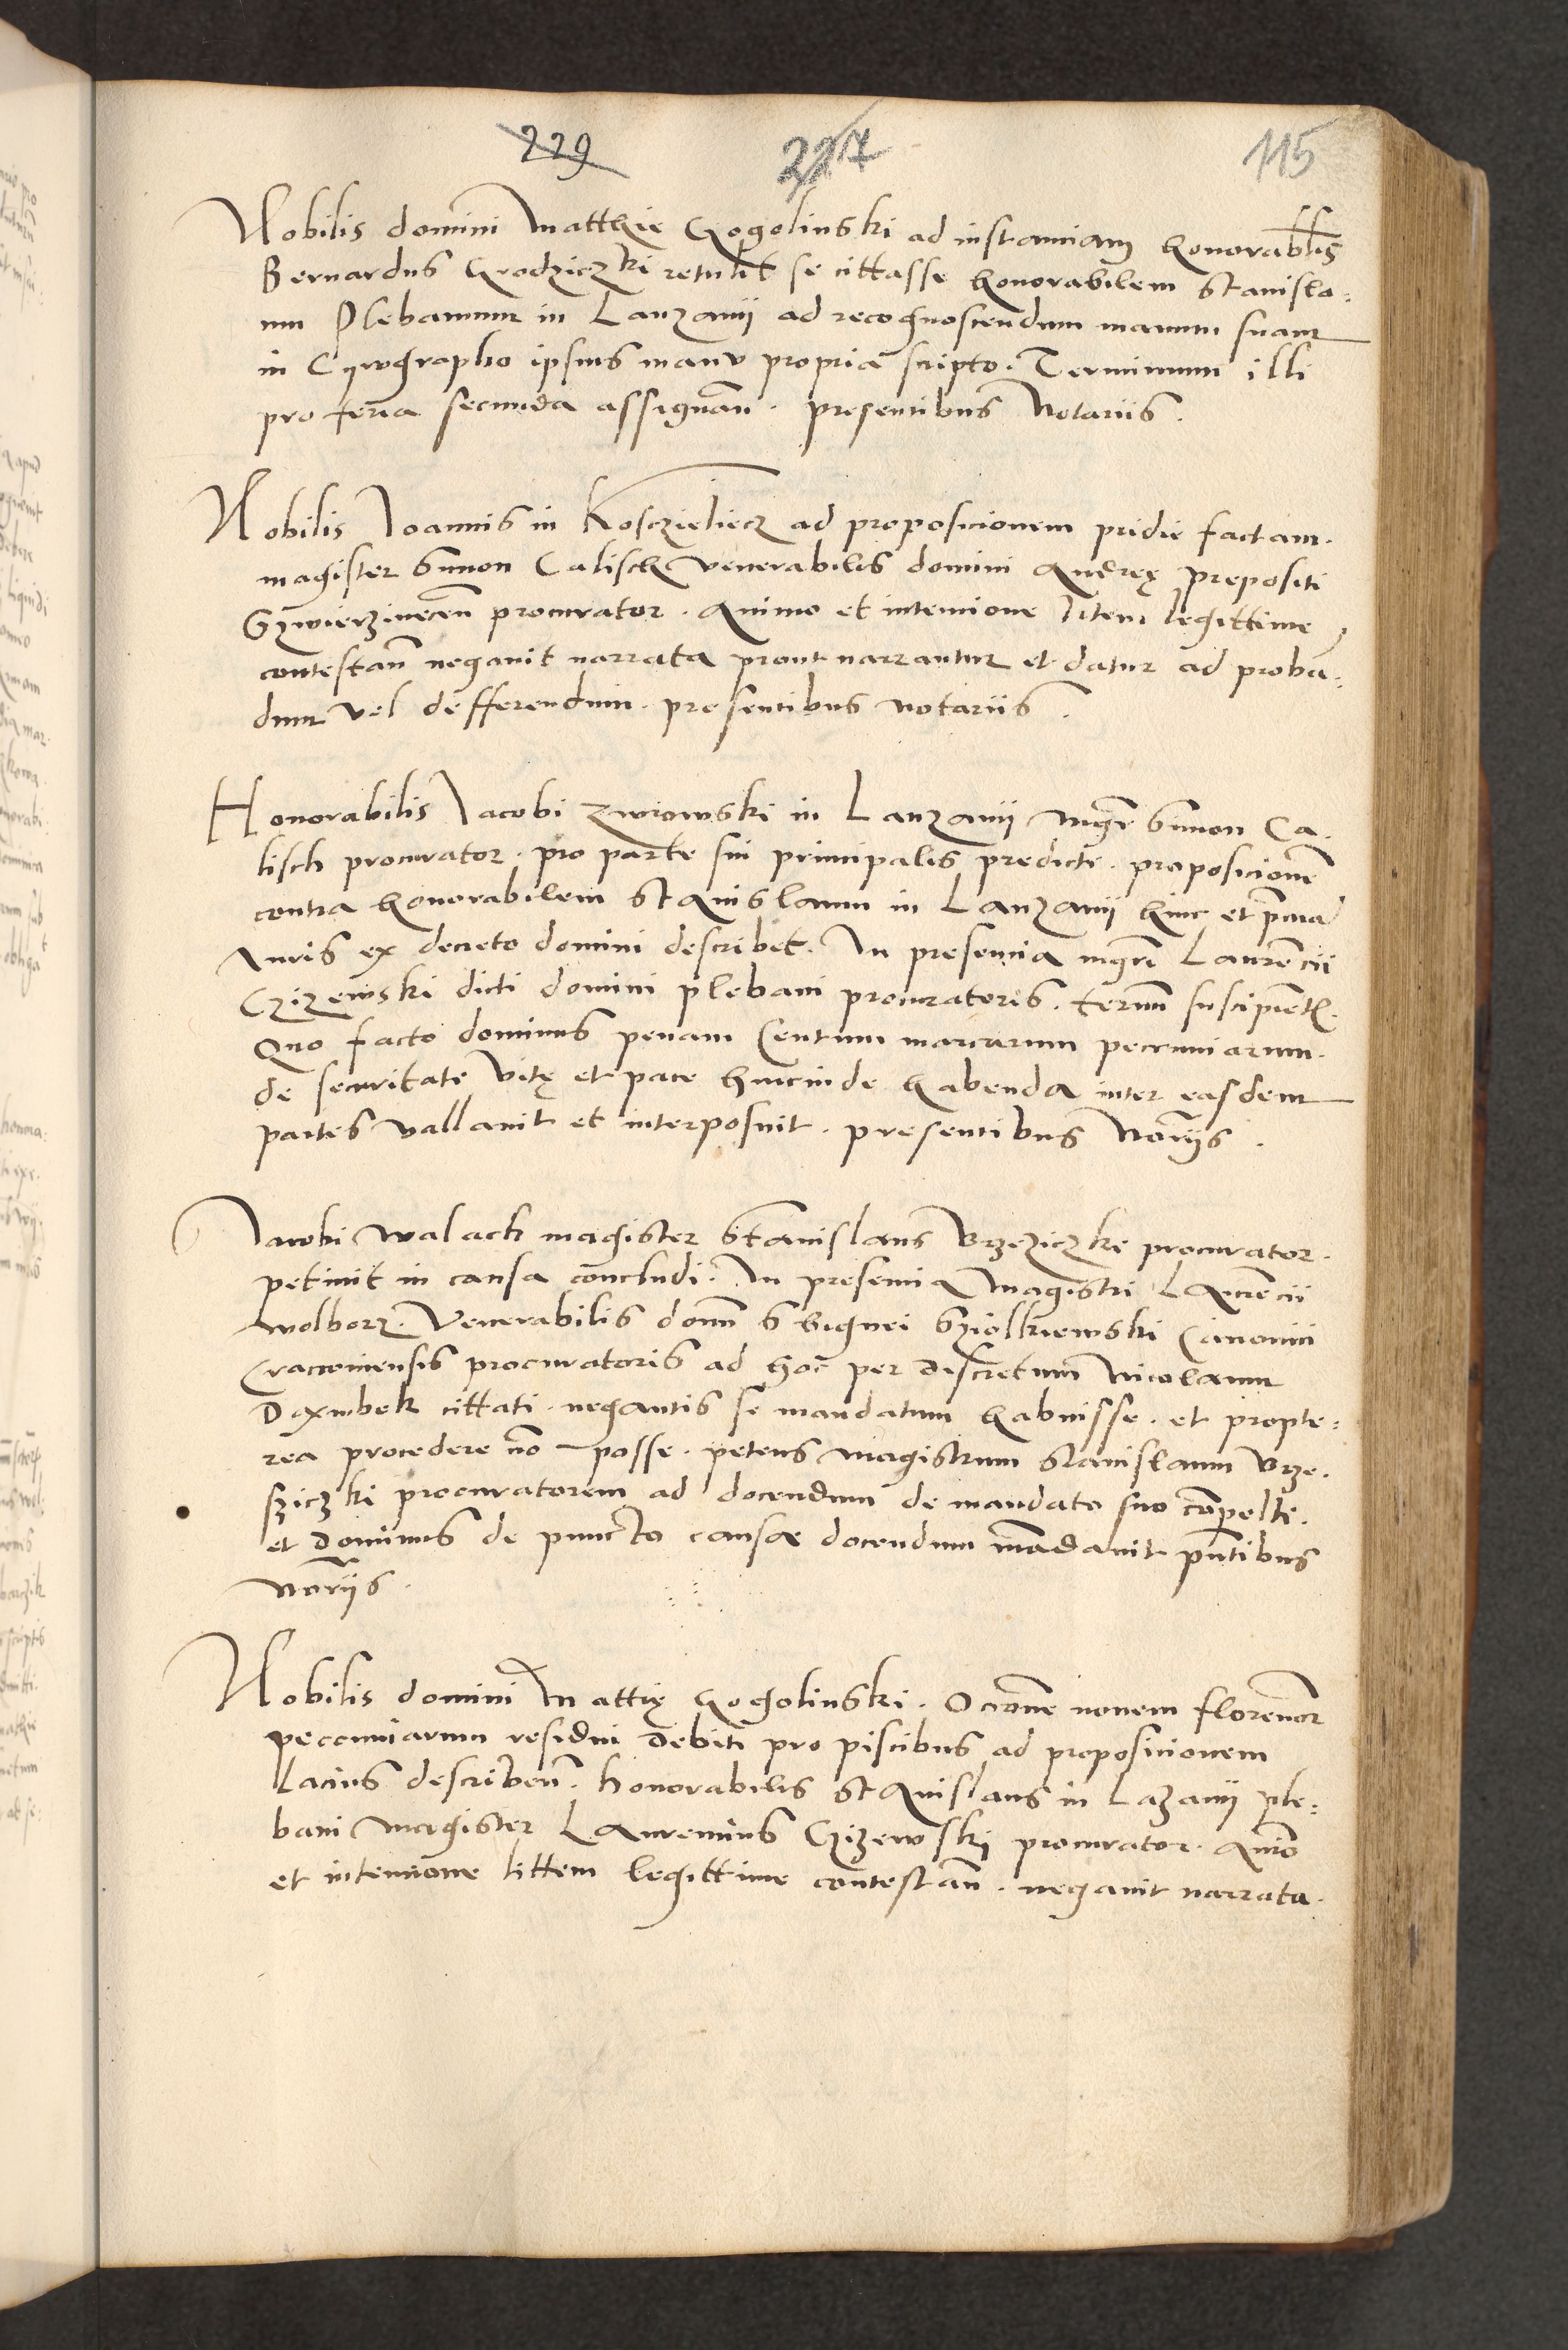 229 227 115
Nobilis domini Matthie Gogolinski ad instanciam honorablis
Bernardus Grodziczki retulit se cittasse honorabilem Stanisla⸗
um Plebanum in Lanzanij ad recognoscendum manum suam
in Cyrographo ipsius manu propria scripto. Terminum illi
pro feria secunda assignan̄. presentibus Notariis.
Nobilis Joannis in Kosczieliecz ad proposicionem pridie factam.
magister Simon Calisch venerabilis domini Andreę prepositi
procurator. Animo et intencione litem legittime
contestan̄ negavit narrata prout narrantur et datur ad proban⸗
dum vel defferendum. presentibus notariis.
Honorabilis Jacobi Zwrowski in Lanzanij mgr̄ Simon Ca⸗
lisch procurator. pro parte sui principalis predicti. proposicionē
contra honorabilem Stanislaum in Lanzanij hinc et
Juris ex decreto domini describet. In presencia mgrī Laurēcii
Czizewski dicti domini plebani procuratoris. termī suscipient̄.
Quo facto dominus penam Centum marcarum peccuniarum.
de securitate vitę et pace hincinde habenda inter easdem
partes vallavit et interposuit. presentibus Norijs.
Jacobi Walach magister Stanislaus Brzeziczki procurator.
petivit in causa concludi. In presencia Magistri Laurēcii
Wolborz. Venerabilis domī Sbignei Sziolkiewski Canonici
Cracoviensis procuratoris ad hoc per discretum Nicolaum
Dąmbek cittati. negantis se mandatum habuisse. et propte⸗
rea procedere nō posse. petens magistrum Stanislaum Brze⸗
sziczki procuratorem ad docendum de mandato suo cōpelli.
et Dominus de puncto causae docendum mādavit pn̄tibus
norijs.
Nobilis domini Mattię Gogolinski. Occōne novem florenor
peccuniarum residui debiti pro piscibus ad proposicionem
lacius describen̄. honorabilis Stanislaus in Lazanij ple⸗
bani magister Laurencius Czizewskj procurator. Aīo
et intencione littem legittime contestan̄. negavit narrata.